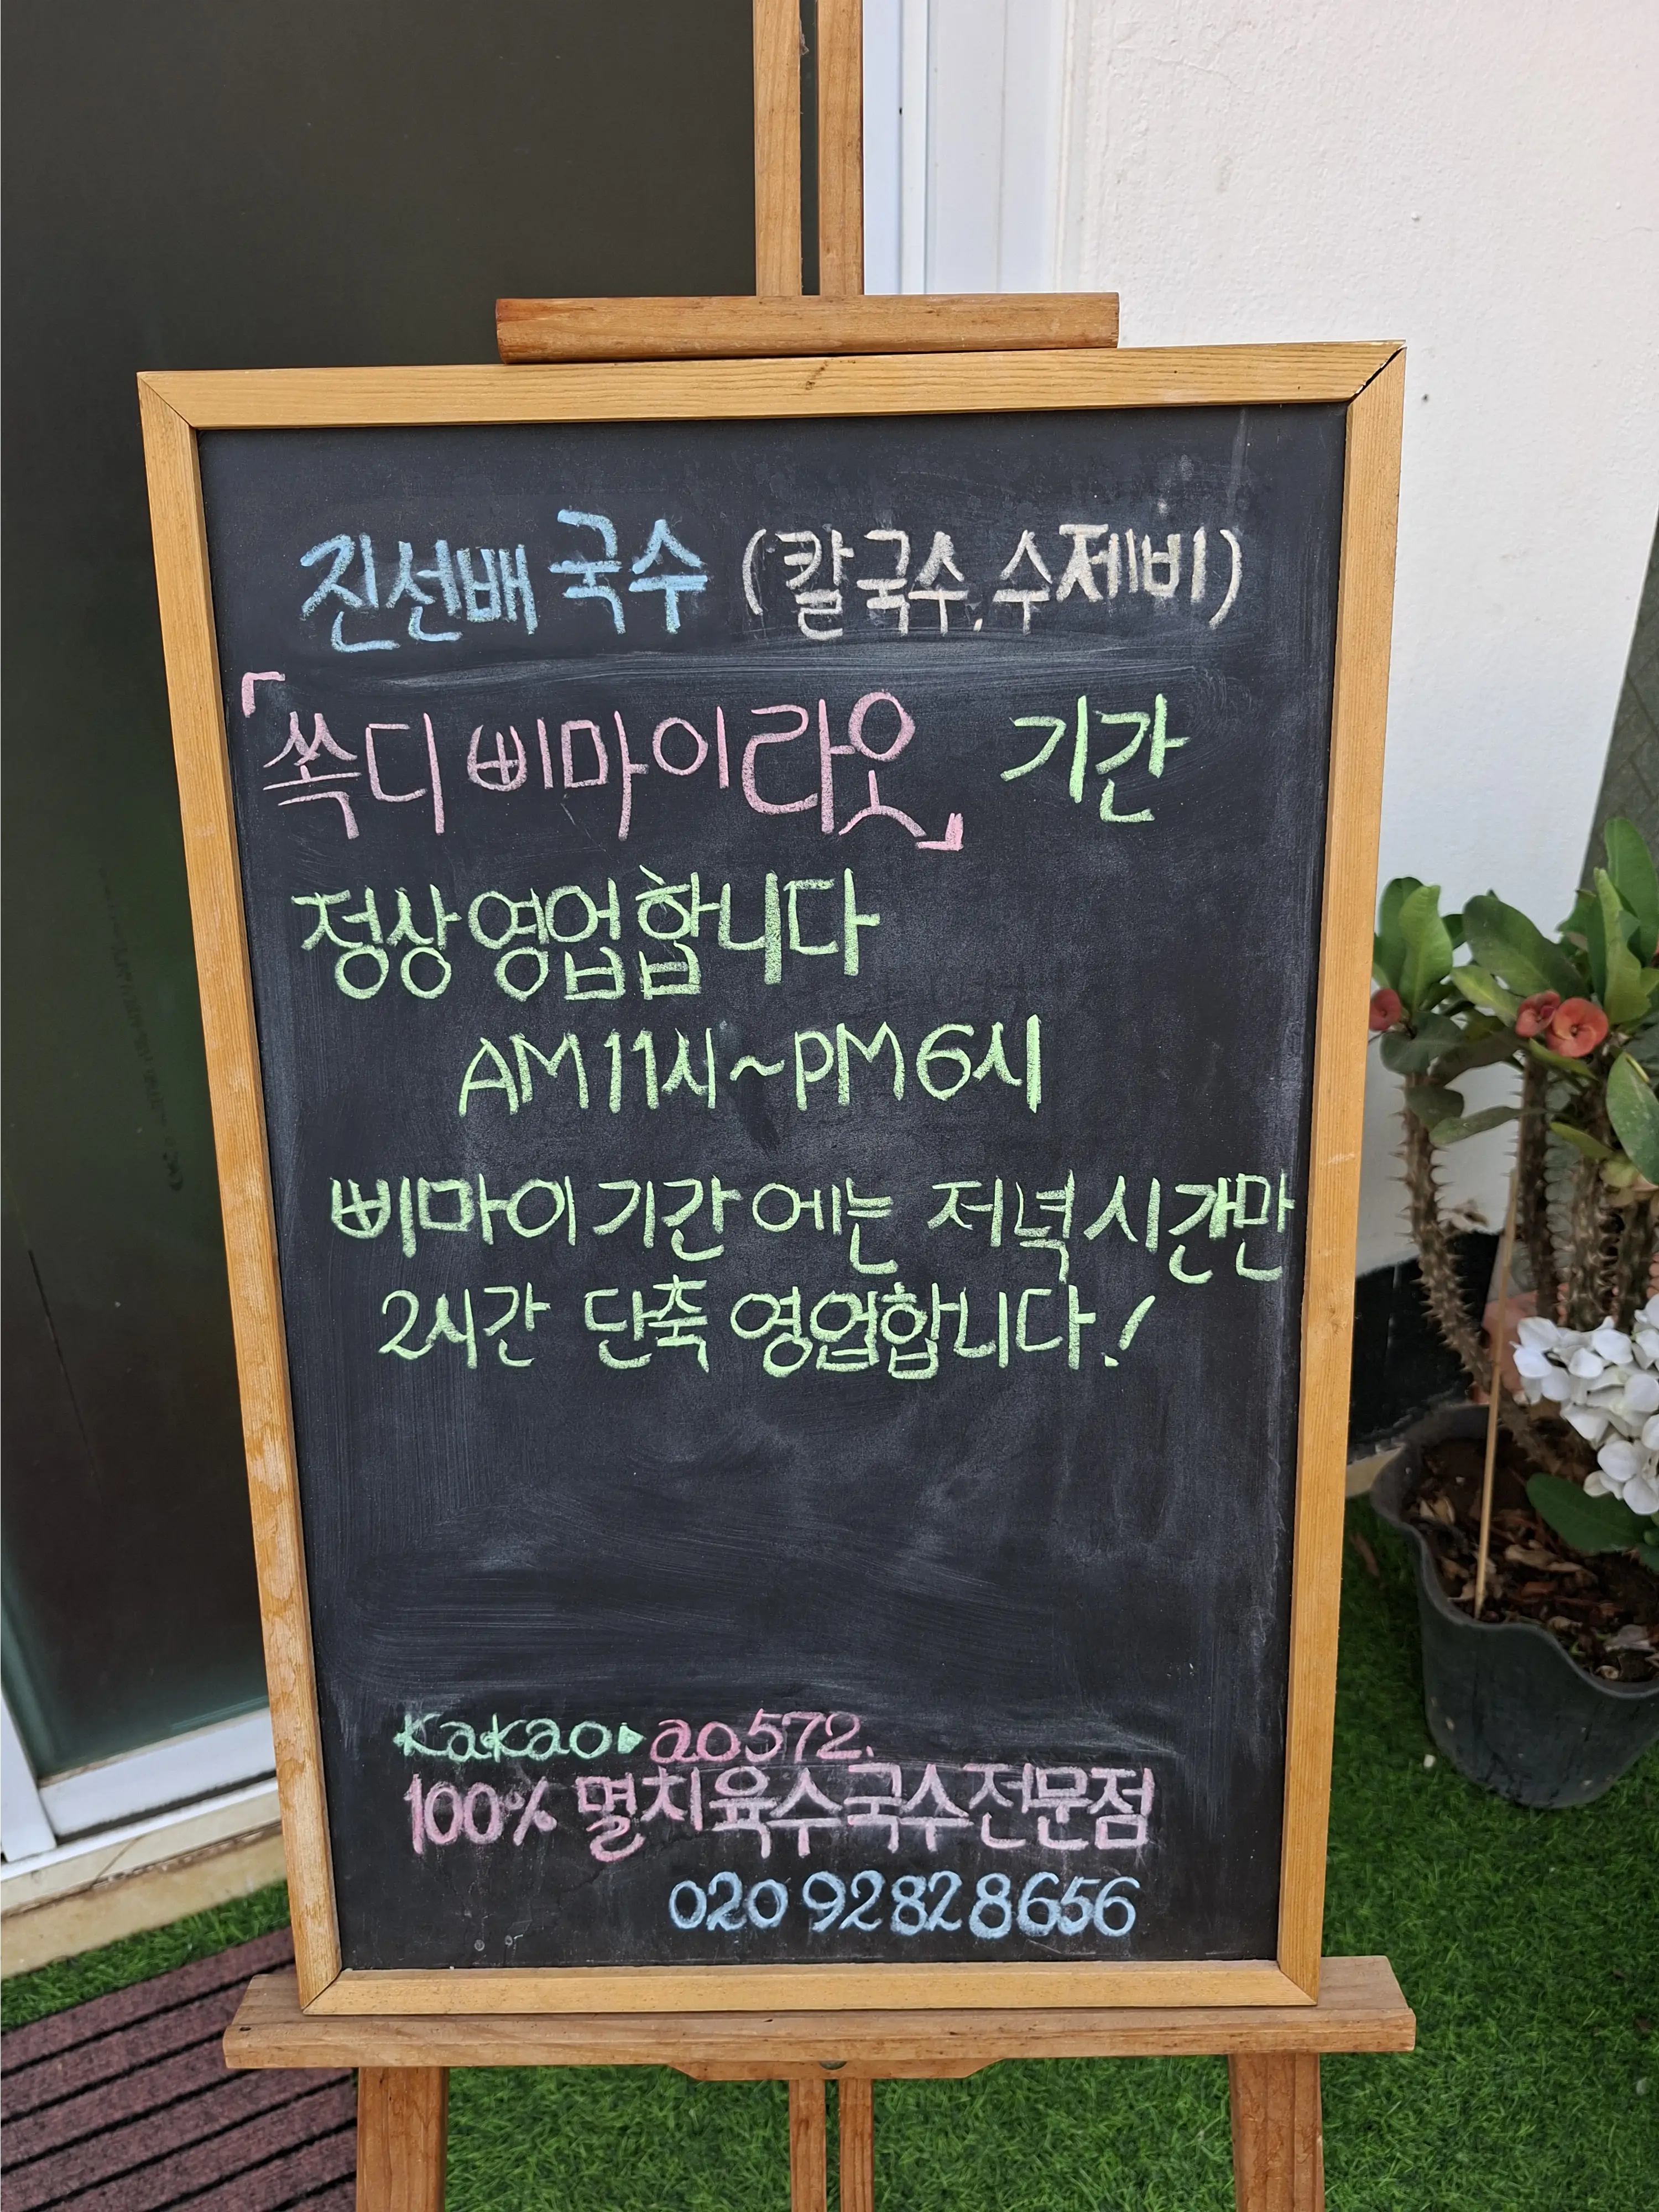 진선배 국수 (칼국수, 수제비)
「쏙디 삐마이라오」 기간
정상 영업합니다
AM 11시~PM 6시
삐마이 기간에는 저녁시간만
2시간 단축 영업합니다!
Kakao▶ao572.
100% 멸치육수국수전문점
020 9282 8656